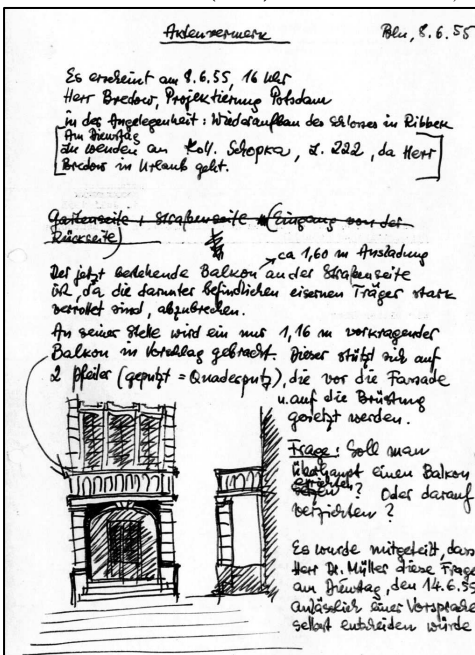 Aktenvermerk
Bln, 8.6.55
Es erscheint am 8.6.55, 16 Uhr
Herr Bredow, Projektierung Potsdam
in der Angelegenheit: Wiederaufbau des Schlosses in Ribbeck
Am Dienstag
zu wenden an Koll. Schopka, Z. 222, da Herr
Bredow in Urlaub geht.
Gartenseite + Straßenseite (Eingang von der
Rückseite)
ca 1,60 m Ausladung
Der jetzt bestehende Balkon an der Straßenseite
ist, da die darunter befindlichen eisernen Träger stark
verrottet sind, abzubrechen.
An seiner Stelle wird ein nur 1,16 m vorkragender
Balkon in Vorschlag gebracht. Dieser stützt sich auf
2 Pfeiler (geputzt = Quaderputz), die vor die Fassade
u. auf die Brüstung
gesetzt werden.
Frage: Soll man
überhaupt einen Balkon
errichten
setzen? Oder darauf
verzichten?
Es wurde mitgeteilt, dass
Herr Dr. Müller diese Frage
am Dienstag, den 14.6.55
anlässlich einer Vorsprache
selbst entscheiden würde